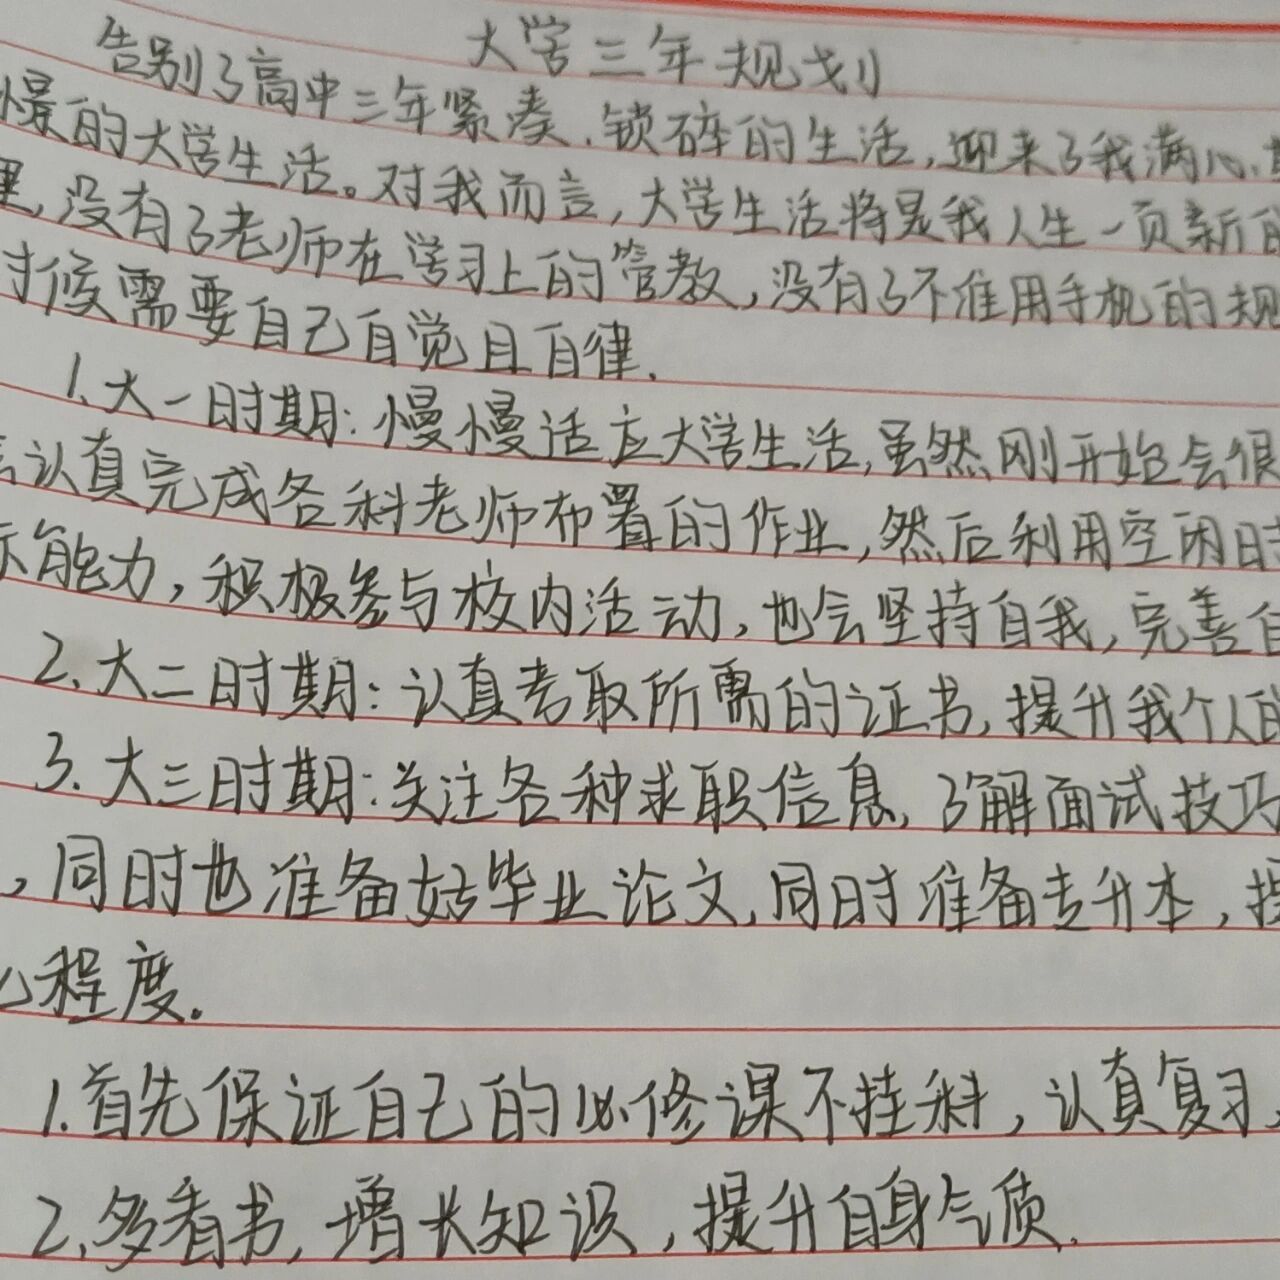 大学三年规划
告别了高中三年紧凑、锁碎的生活,迎来了我满心
憬的大学生活。对我而言,大学生活将是我人生一页新的
里,没有了老师在学习上的管教,没有了不准用手机的规
时候需要自己自觉且自律.
1.大一时期:慢慢适应大学生活,虽然刚开始会很
认真完成各科老师布置的作业,然后利用空闲时
际能力,积极参与校内活动,也会坚持自我,完善自
2.大二时期:认真考取所需的证书,提升我个人的
3.大三时期:关注各种求职信息,了解面试技巧
,同时也准备好毕业论文,同时准备专升本,提
程度.
1.首先保证自己的必修课不挂科,认真复习,
2.多看书,增长知识,提升自身气质.